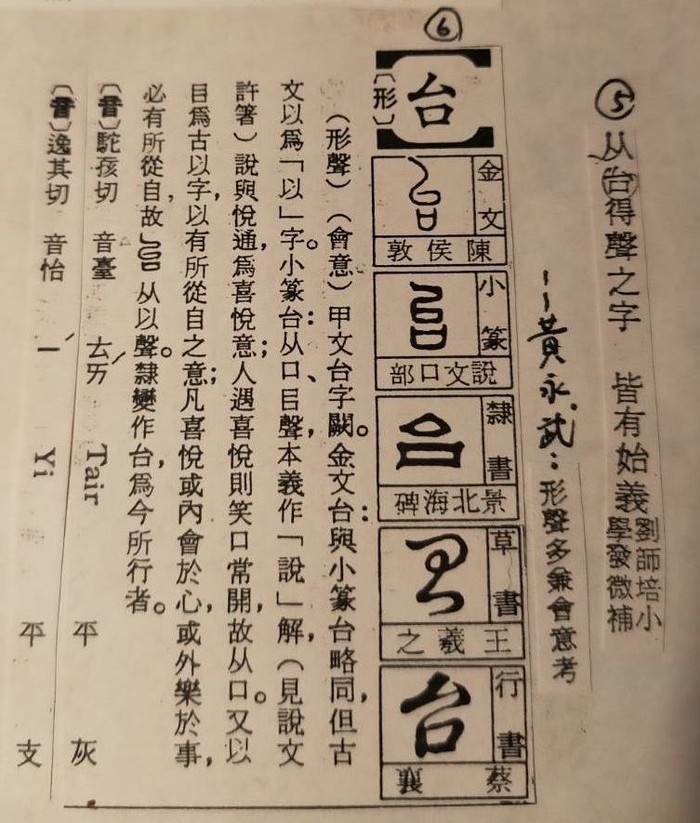 ⑤ 从台得聲之字 皆有始義 劉師培小
學發微補
--黃永武：形聲多兼會意考
⑥
【台】
〔形〕
金文
陳侯敦
小篆
說文口部
隸書
景北海碑
草書
王羲之
行書
蔡襄
（形聲）（會意）甲文台字闕。金文台：與小篆台略同，但古
文以為「以」字。小篆台：从口、㠯聲，本義作「說」解，（見說文
許箸）說與悅通，為喜悅意；人遇喜悅則笑口常開，故从口。又以
㠯為古以字，以有所從自之意；凡喜悅或內會於心，或外樂於事，
必有所從自，故台从以聲。隸變作台，為今所行者。
〔音〕駝孩切 音臺 ㄊㄞˊ Tair 平 灰
〔音〕逸其切 音怡 ㄧˊ Yi 平 支